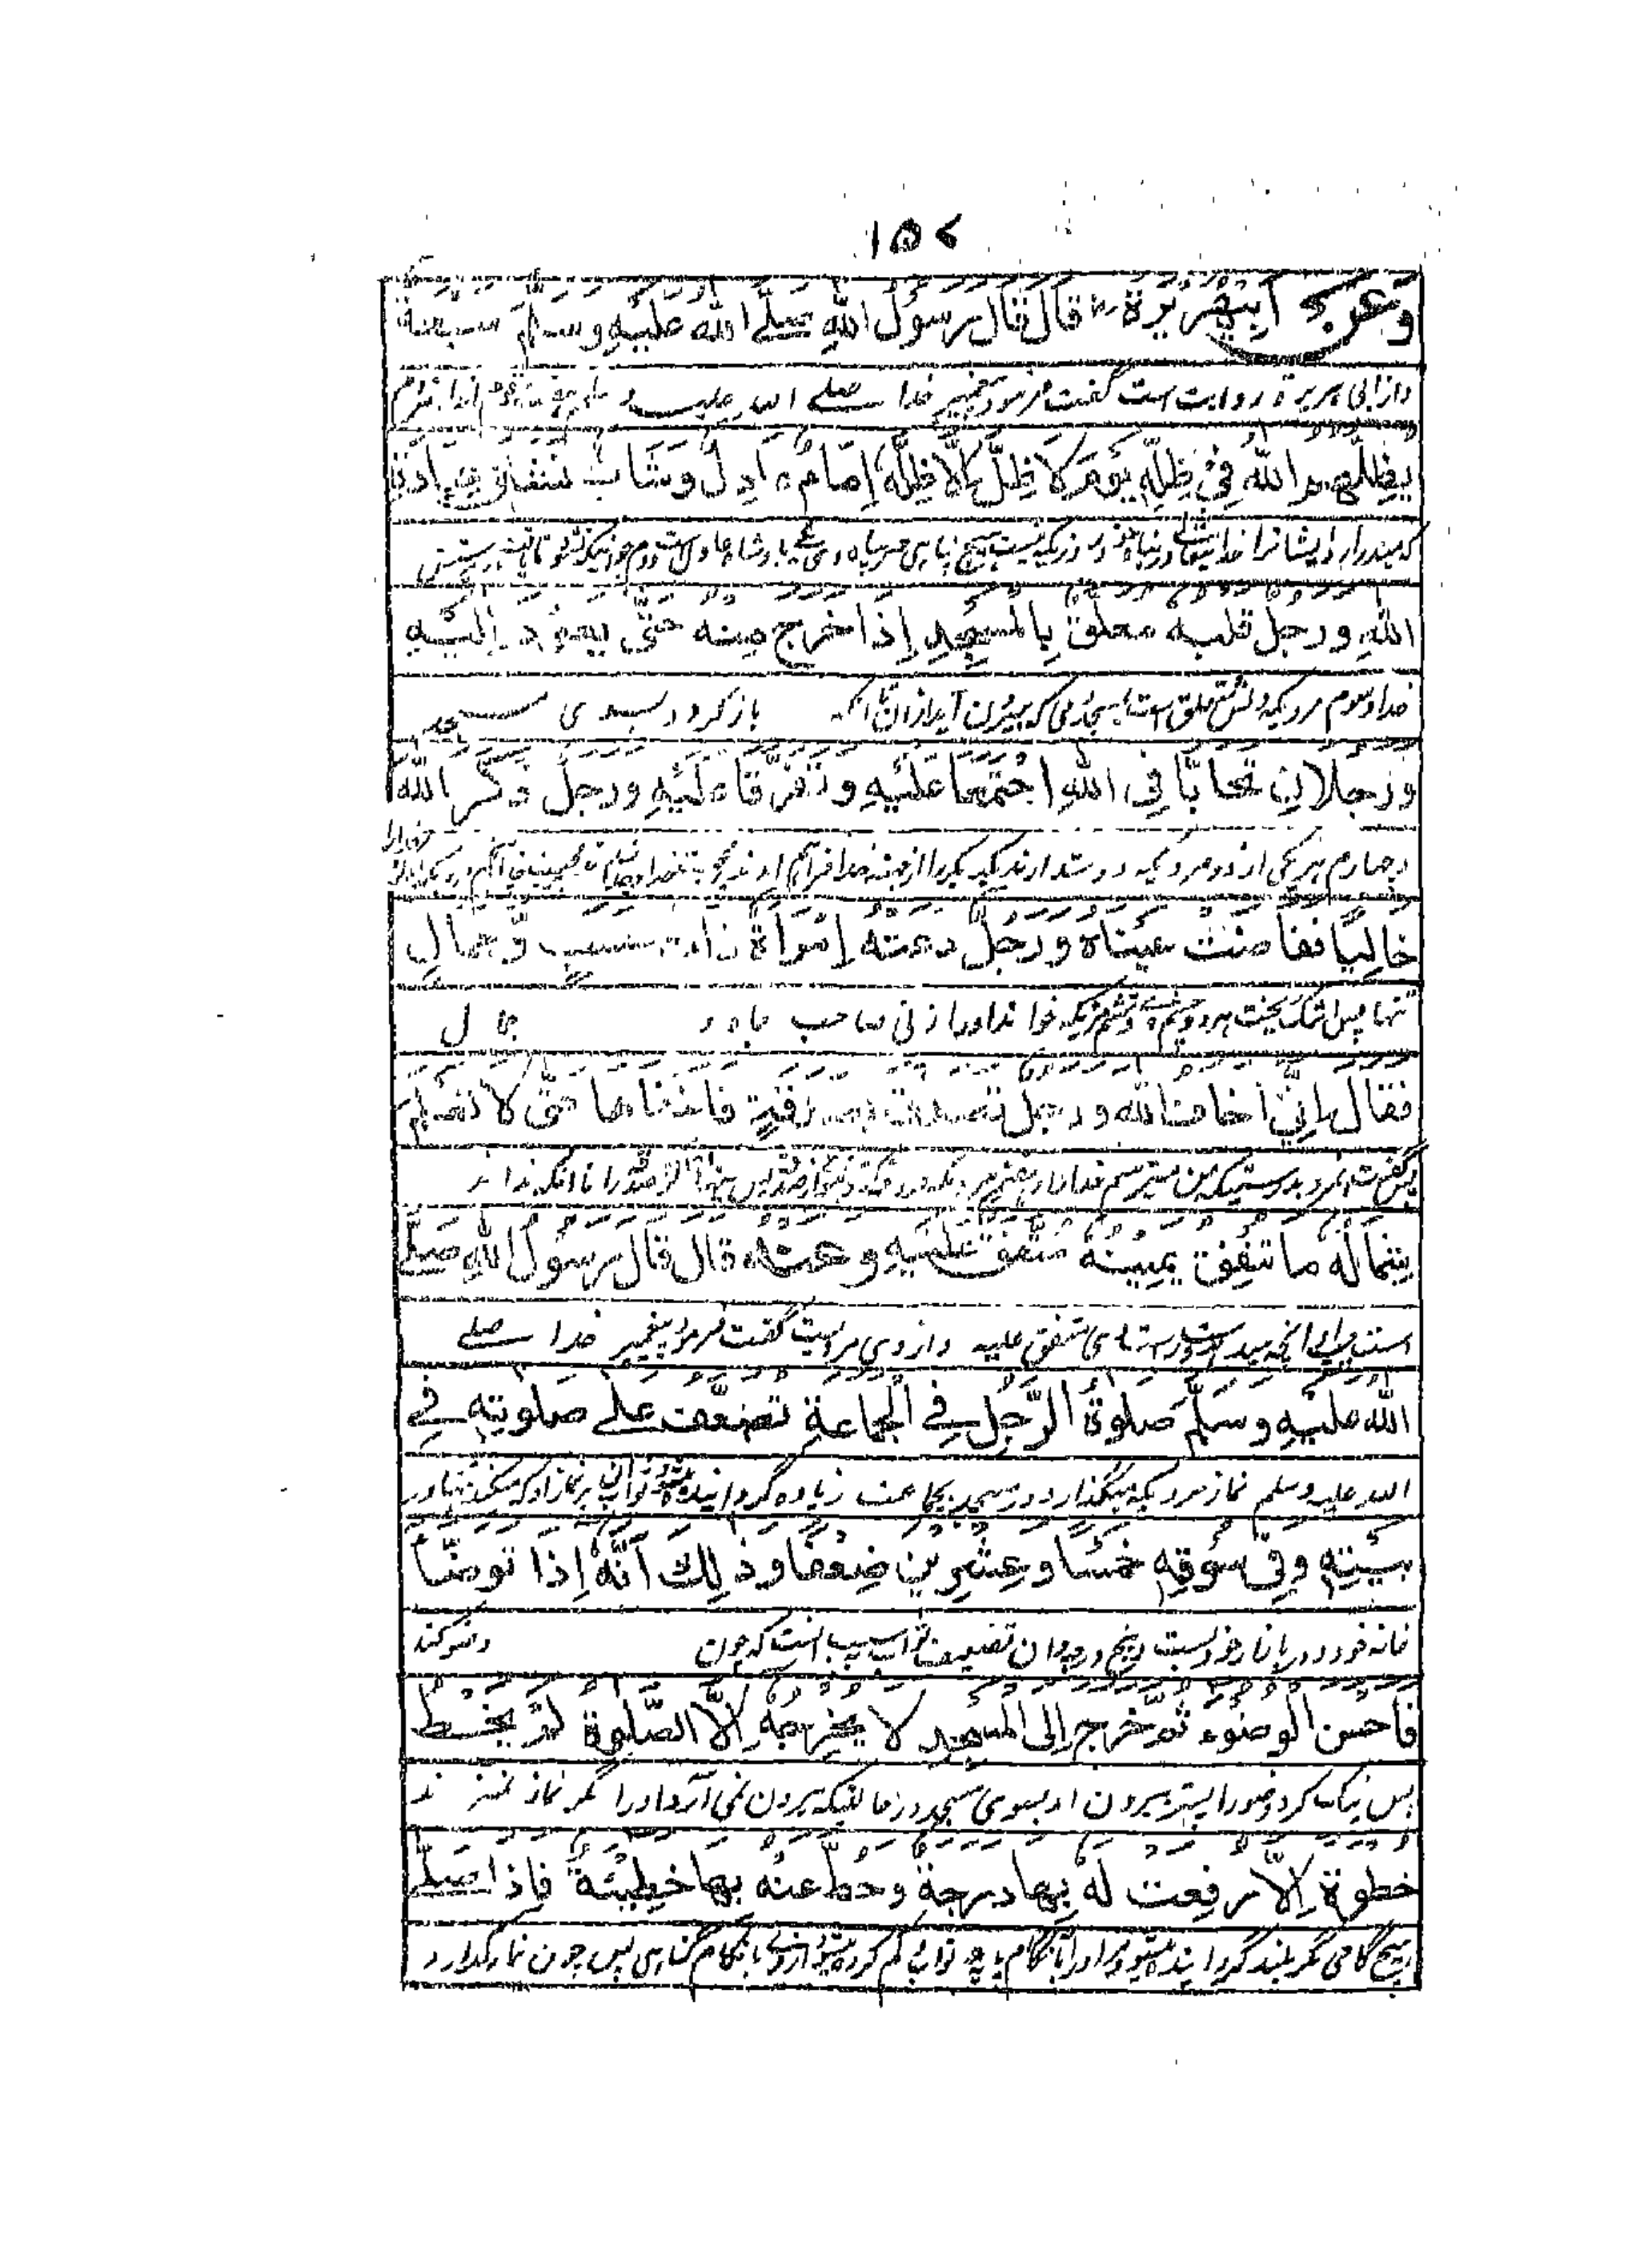 ١٥٢
وَعن أبي هريرة رض قال قال رسول الله صلّے الله عليه وسلم سبعة
واز ابی هریرة روایت است گفت فرمود پیغمبر خدا صلے الله علیه وسلم
يظلهم الله في ظله يوم لا ظل إلا ظله إمام عادل وشاب نشأ في عبادة
که میدارد ایشانرا خدایتعالے در پناه خود روزیکه نیست هیچ پناهی جز پناه وی یکے بادشاه عادل است دوم جوانیکه
الله ورجل قلبه معلق بالمسجد إذا خرج منه حتى يعود إليه
خدا وسوم مردیکه دلش معلق است بمسجد وقتی که بیرون آید ازان تا آنکه باز گردد بسوی مسجد
ورجلان تحابا في الله اجتمعا عليه وتفرقا عليه ورجل ذكر الله
وچهارم هر یکی از دو مردیکه دوستدارند یکدیگر را از جهة خدا فراهم
خاليا ففاضت عيناه ورجل دعته إمرأة ذات حسب وجمال
تنها پس اشک ریخت هر دو چشم وی وششم مردیکه خواند او را زنی صاحب جاه و جمال
فقال إني أخاف الله ورجل تصدق بصدقة فأخفاها حتى لا تعلم
پس گفت آنمرد بدرستیکه من میترسم خدا را وهفتم مردیکه صدقه را تا آنکه نداند
شماله ما تنفق يمينه متفق عليه وعنه قال قال رسول الله صلّے
دست چپ او آنچه میدهد دست راست وی متفق علیه واز وی مرویست گفت فرمود پیغمبر خدا صلے
الله عليه وسلم صلوة الرجل في الجماعة تضعف علے صلوته في
الله علیه وسلم نماز مردیکه میگذارد در مسجد بجماعت زیاده گردانیده میشود ثواب آن بر نماز او که میکند تنها در
بيته وفي سوقه خمسا وعشرين ضعفا وذلك أنه إذا توضأ
خانه خود و در بازار خود بیست وپنج درجه وآن تضعیف ثواب بسبب آنست که چون وضو کند
فأحسن الوضوء ثم خرج إلى المسجد لا يخرجه إلا الصلوة لم يخط
پس نیک کرد وضو را پستر بیرون آمد بسوی مسجد در حالتیکه بیرون نمی آرد او را مگر نماز نمی نهد
خطوة إلا رفعت له بها درجة وحط عنه بها خطيئة فإذا صلّے
هیچ گامی مگر بلند گردانیده میشود مر او را بآن گام پایهٔ ثواب وکم کرده میشود از وے بآن گام گناهی پس چون نماز گذارد